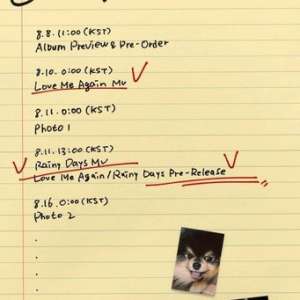 8.8. 11:00 (KST)
Album Preview & Pre-Order
8.10. 0:00 (KST)
Love Me Again MV
8.11. 0:00 (KST)
Photo 1
8.11. 13:00 (KST)
Rainy Days MV
Love Me Again / Rainy Days Pre-Release
8.16. 0:00 (KST)
Photo 2
.
.
.
.